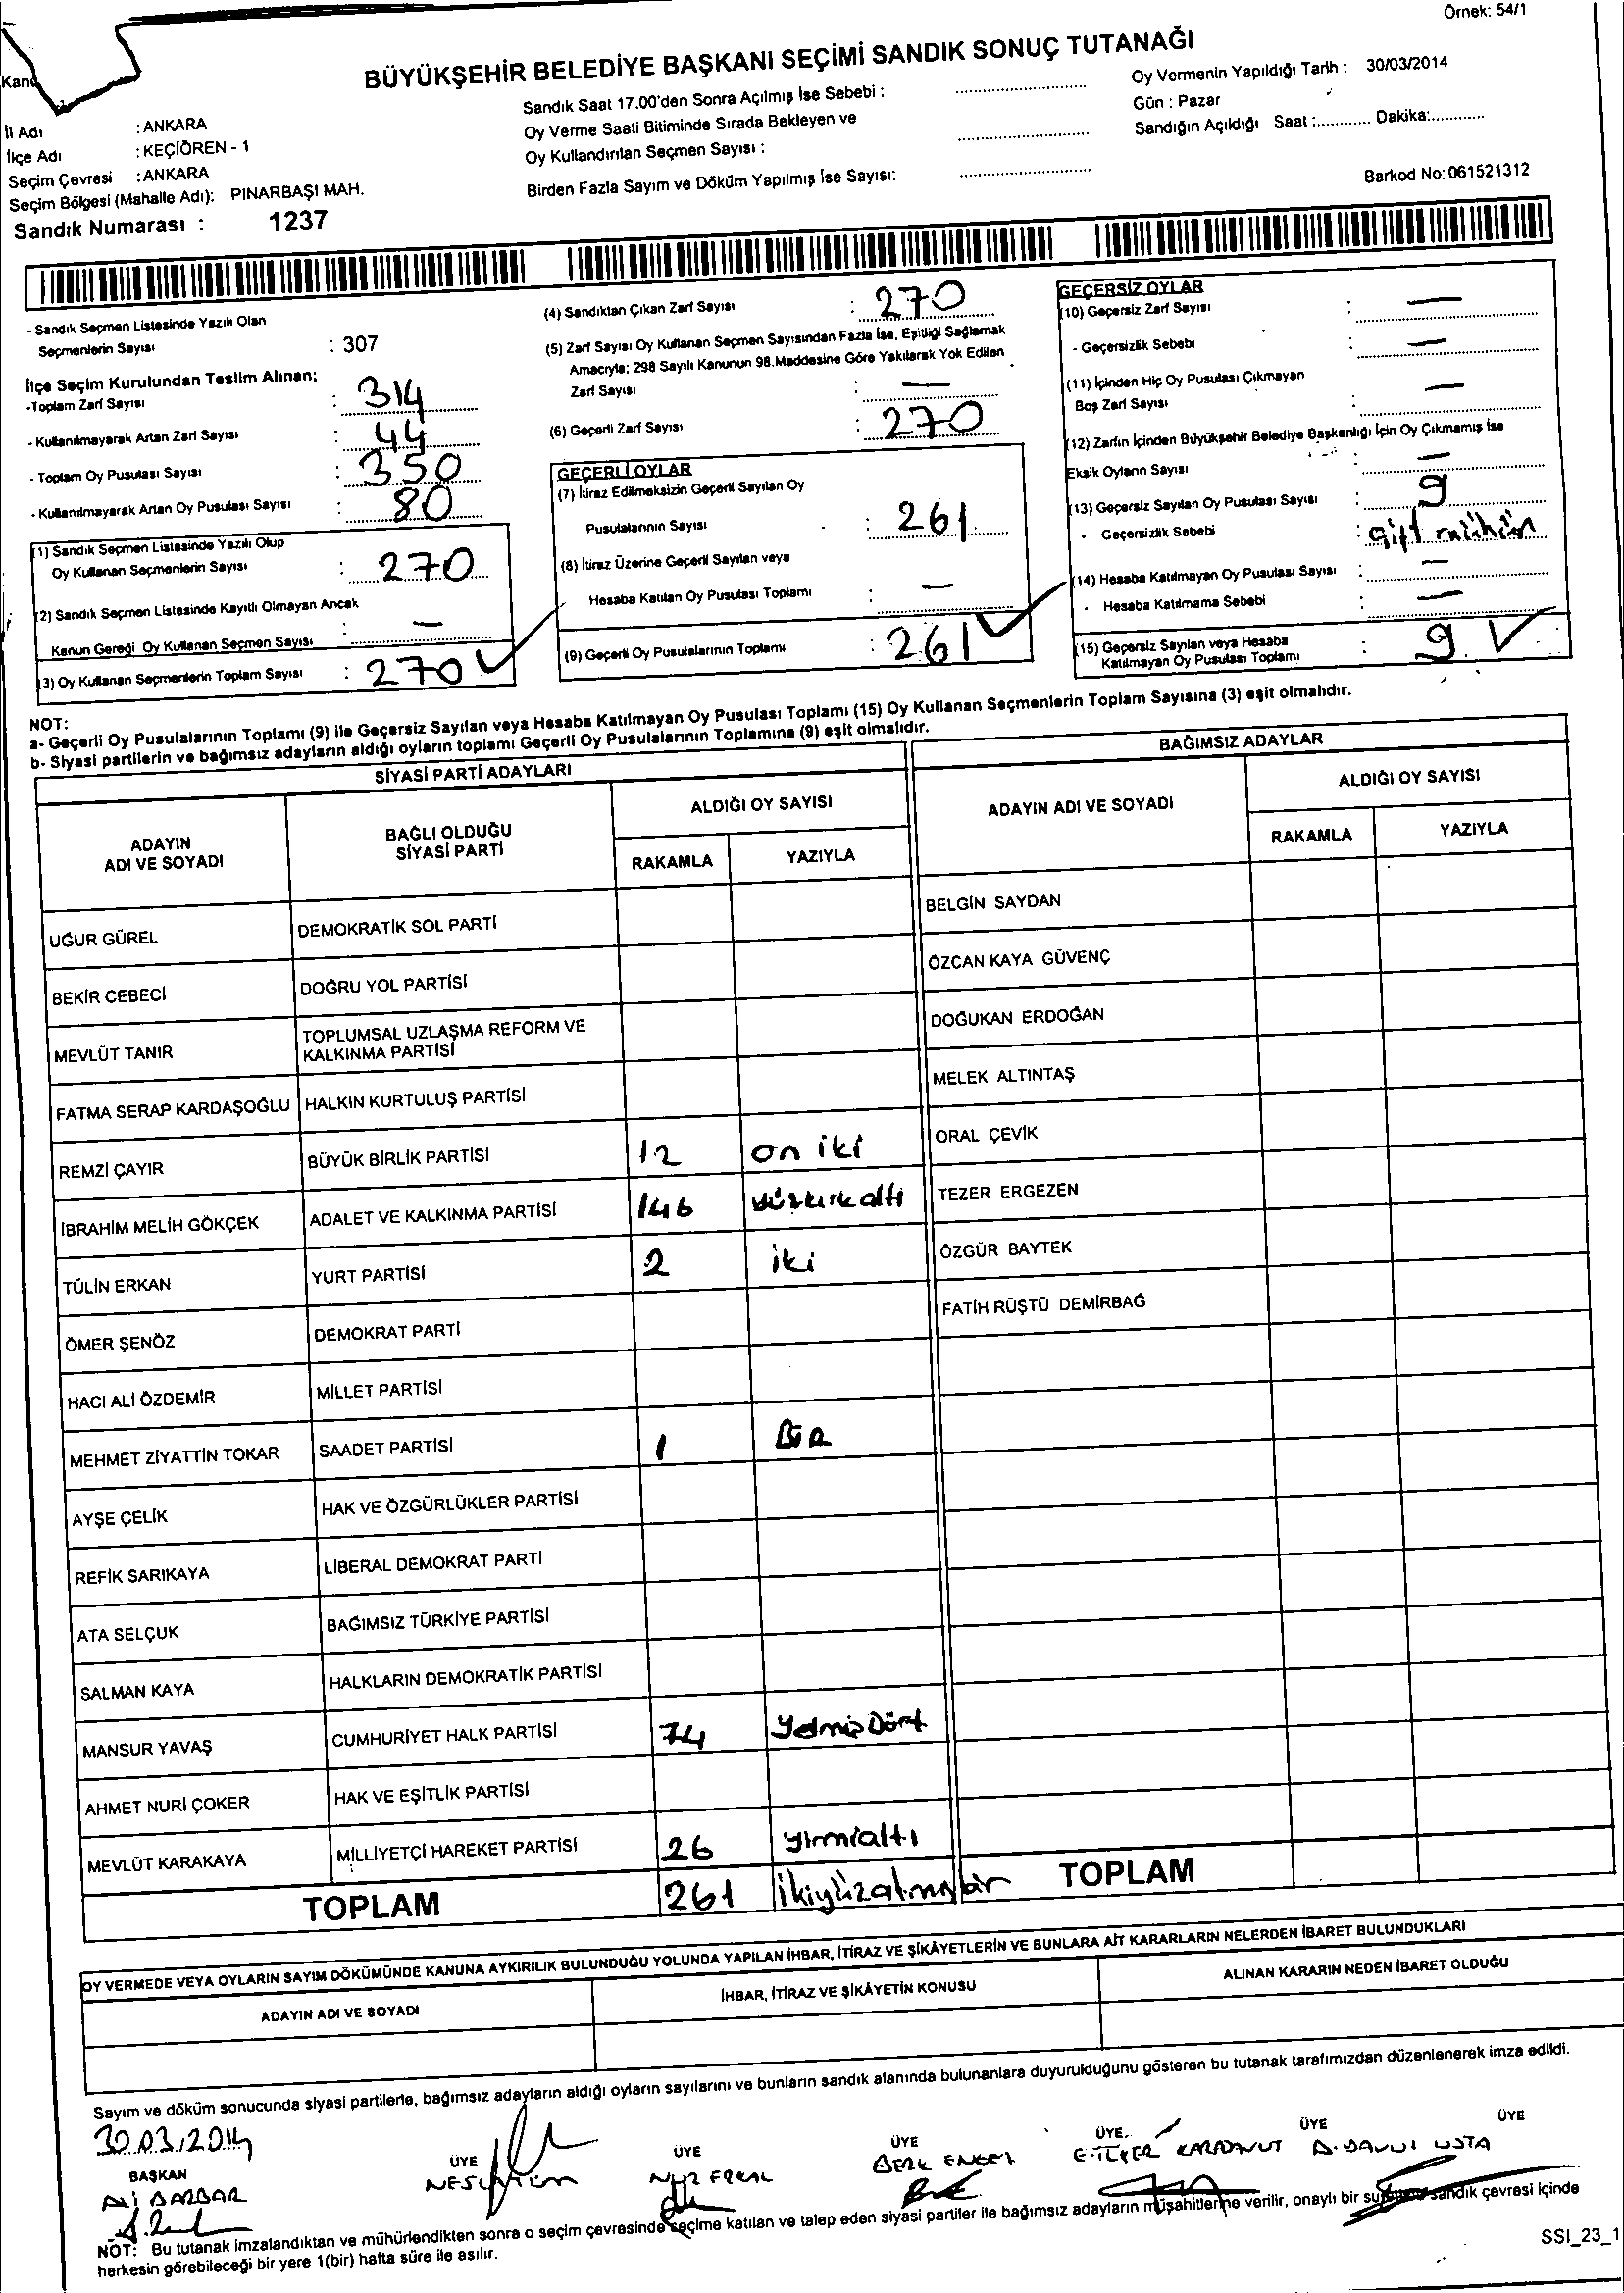 Örnek: 54/1
BÜYÜKŞEHİR BELEDİYE BAŞKANI SEÇİMİ SANDIK SONUÇ TUTANAĞI
İl Adı : ANKARA
İlçe Adı : KEÇİÖREN - 1
Seçim Çevresi : ANKARA
Seçim Bölgesi (Mahalle Adı): PINARBAŞI MAH.
Sandık Numarası : 1237
Sandık Saat 17.00'den Sonra Açılmış İse Sebebi :
Oy Verme Saati Bitiminde Sırada Bekleyen ve
Oy Kullandırılan Seçmen Sayısı :
Birden Fazla Sayım ve Döküm Yapılmış İse Sayısı:
Oy Vermenin Yapıldığı Tarih : 30/03/2014
Gün : Pazar
Sandığın Açıldığı Saat :............ Dakika:............
Barkod No: 061521312
- Sandık Seçmen Listesinde Yazılı Olan
Seçmenlerin Sayısı : 307
İlçe Seçim Kurulundan Teslim Alınan;
-Toplam Zarf Sayısı : 314
- Kullanılmayarak Artan Zarf Sayısı : 44
- Toplam Oy Pusulası Sayısı : 350
- Kullanılmayarak Artan Oy Pusulası Sayısı : 80
(1) Sandık Seçmen Listesinde Yazılı Olup
Oy Kullanan Seçmenlerin Sayısı : 270
(2) Sandık Seçmen Listesinde Kayıtlı Olmayan Ancak
Kanun Gereği Oy Kullanan Seçmen Sayısı : —
(3) Oy Kullanan Seçmenlerin Toplam Sayısı : 270
(4) Sandıktan Çıkan Zarf Sayısı : 270
(5) Zarf Sayısı Oy Kullanan Seçmen Sayısından Fazla İse, Eşitliği Sağlamak
Amacıyla; 298 Sayılı Kanunun 98.Maddesine Göre Yakılarak Yok Edilen
Zarf Sayısı : —
(6) Geçerli Zarf Sayısı : 270
GEÇERLİ OYLAR
(7) İtiraz Edilmeksizin Geçerli Sayılan Oy
Pusulalarının Sayısı : 261
(8) İtiraz Üzerine Geçerli Sayılan veya
Hesaba Katılan Oy Pusulası Toplamı : —
(9) Geçerli Oy Pusulalarının Toplamı : 261
GEÇERSİZ OYLAR
(10) Geçersiz Zarf Sayısı : —
- Geçersizlik Sebebi : —
(11) İçinden Hiç Oy Pusulası Çıkmayan
Boş Zarf Sayısı : —
(12) Zarfın İçinden Büyükşehir Belediye Başkanlığı İçin Oy Çıkmamış İse
Eksik Oyların Sayısı : —
(13) Geçersiz Sayılan Oy Pusulası Sayısı : 9
- Geçersizlik Sebebi : çift mühür
(14) Hesaba Katılmayan Oy Pusulası Sayısı : —
- Hesaba Katılmama Sebebi : —
(15) Geçersiz Sayılan veya Hesaba
Katılmayan Oy Pusulası Toplamı : 9
NOT:
a- Geçerli Oy Pusulalarının Toplamı (9) ile Geçersiz Sayılan veya Hesaba Katılmayan Oy Pusulası Toplamı (15) Oy Kullanan Seçmenlerin Toplam Sayısına (3) eşit olmalıdır.
b- Siyasi partilerin ve bağımsız adayların aldığı oyların toplamı Geçerli Oy Pusulalarının Toplamına (9) eşit olmalıdır.
SİYASİ PARTİ ADAYLARI
ADAYIN ADI VE SOYADI
BAĞLI OLDUĞU SİYASİ PARTİ
ALDIĞI OY SAYISI
RAKAMLA YAZIYLA
UĞUR GÜREL DEMOKRATİK SOL PARTİ
BEKİR CEBECİ DOĞRU YOL PARTİSİ
MEVLÜT TANIR TOPLUMSAL UZLAŞMA REFORM VE KALKINMA PARTİSİ
FATMA SERAP KARDAŞOĞLU HALKIN KURTULUŞ PARTİSİ
REMZİ ÇAYIR BÜYÜK BİRLİK PARTİSİ 12 on iki
İBRAHİM MELİH GÖKÇEK ADALET VE KALKINMA PARTİSİ 146 yüzkırk altı
TÜLİN ERKAN YURT PARTİSİ 2 iki
ÖMER ŞENÖZ DEMOKRAT PARTİ
HACI ALİ ÖZDEMİR MİLLET PARTİSİ
MEHMET ZİYATTİN TOKAR SAADET PARTİSİ 1 Bir
AYŞE ÇELİK HAK VE ÖZGÜRLÜKLER PARTİSİ
REFİK SARIKAYA LİBERAL DEMOKRAT PARTİ
ATA SELÇUK BAĞIMSIZ TÜRKİYE PARTİSİ
SALMAN KAYA HALKLARIN DEMOKRATİK PARTİSİ
MANSUR YAVAŞ CUMHURİYET HALK PARTİSİ 74 Yetmiş Dört
AHMET NURİ ÇOKER HAK VE EŞİTLİK PARTİSİ
MEVLÜT KARAKAYA MİLLİYETÇİ HAREKET PARTİSİ 26 yirmialtı
TOPLAM 261 ikiyüzatmışbir
BAĞIMSIZ ADAYLAR
ADAYIN ADI VE SOYADI
ALDIĞI OY SAYISI
RAKAMLA YAZIYLA
BELGİN SAYDAN
ÖZCAN KAYA GÜVENÇ
DOĞUKAN ERDOĞAN
MELEK ALTINTAŞ
ORAL ÇEVİK
TEZER ERGEZEN
ÖZGÜR BAYTEK
FATİH RÜŞTÜ DEMİRBAĞ
TOPLAM
OY VERMEDE VEYA OYLARIN SAYIM DÖKÜMÜNDE KANUNA AYKIRILIK BULUNDUĞU YOLUNDA YAPILAN İHBAR, İTİRAZ VE ŞİKÂYETLERİN VE BUNLARA AİT KARARLARIN NELERDEN İBARET BULUNDUKLARI
ADAYIN ADI VE SOYADI
İHBAR, İTİRAZ VE ŞİKÂYETİN KONUSU
ALINAN KARARIN NEDEN İBARET OLDUĞU
Sayım ve döküm sonucunda siyasi partilerle, bağımsız adayların aldığı oyların sayılarını ve bunların sandık alanında bulunanlara duyurulduğunu gösteren bu tutanak tarafımızdan düzenlenerek imza edildi.
30.03.2014
BAŞKAN ÜYE ÜYE ÜYE ÜYE ÜYE ÜYE
Ali BARBAR
NUR
BERK
KARADAVUT
USTA
NOT: Bu tutanak imzalandıktan ve mühürlendikten sonra o seçim çevresinde seçime katılan ve talep eden siyasi partiler ile bağımsız adayların müşahitlerine verilir, onaylı bir sandık çevresi içinde
herkesin görebileceği bir yere 1(bir) hafta süre ile asılır.
SSI_23_1